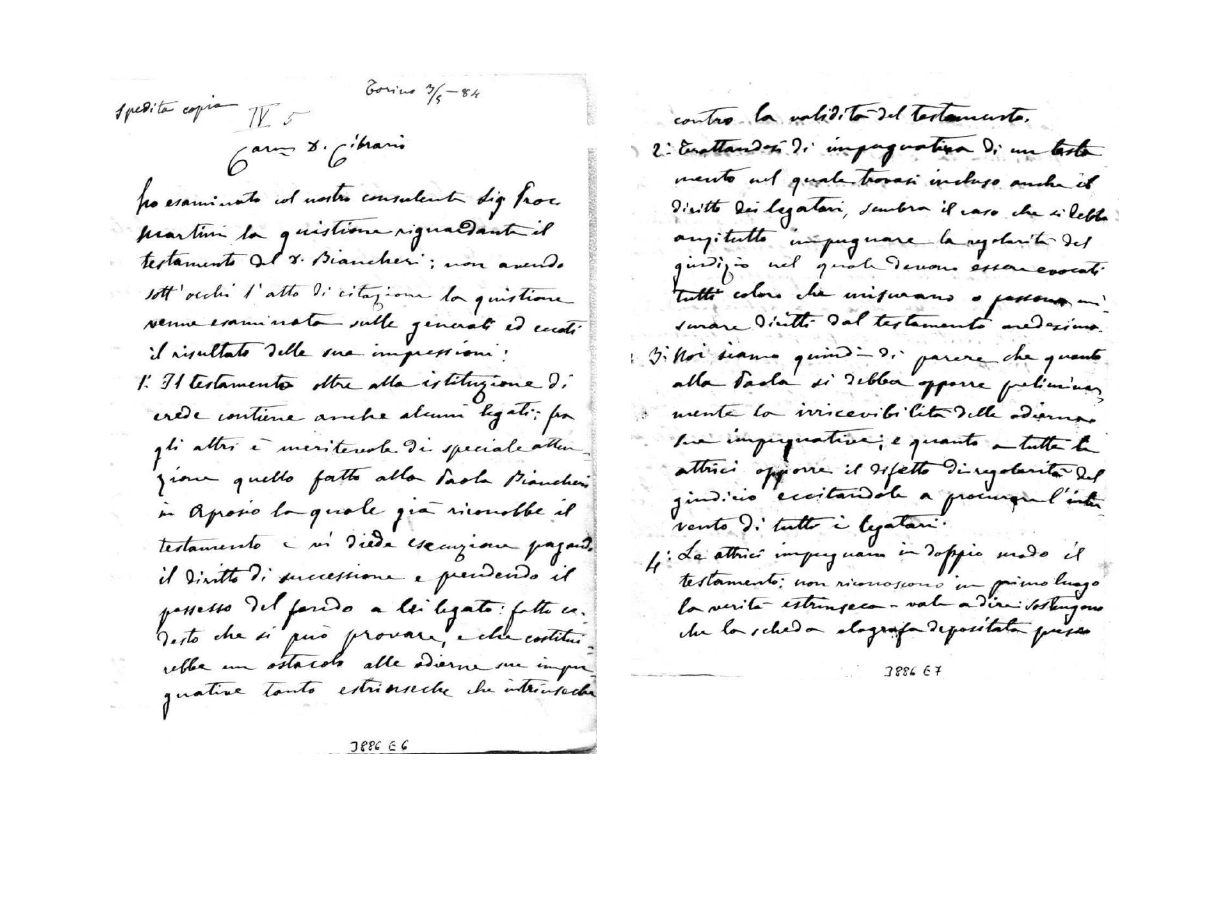 Torino 3/5-84
Spedita copia
IV 5
Caro D. Cibrario
Ho esaminato col nostro consulente Sig Proc
Martini la quistione riguardante il
testamento del D. Biancheri; non avendo
sott'occhi l'atto di citazione la quistione
venne esaminata sulle generali ed eccoti
il risultato delle sue impressioni:
1: Il testamento oltre alla istituzione di
erede contiene anche alcuni legati; fra
gli altri è meritevole di speciale atten-
zione quello fatto alla Paola Biancheri
in Aprosio la quale già riconobbe il
testamento e vi diede esecuzione pagando
il diritto di successione e prendendo il
possesso del fondo a lei legato: fatto co-
desto che si può provare, e che costitui-
rebbe un ostacolo alle odierne sue impu-
gnative tanto estrinseche che intrinseche
3886 E 6
contro la validità del testamento.
2: Trattandosi di impugnativa di un testa
mento nel quale trovasi incluso anche il
diritto dei legatari, sembra il caso che si debba
anzitutto impugnare la regolarità del
giudizio nel quale devono essere evocati
tutti coloro che misurano o possono mi-
surare diritti dal testamento medesimo.
3: Noi siamo quindi di parere che quanto
alla Paola si debba opporre preliminar
mente la irricevibilità delle odierne
sue impugnative; e quanto a tutte le
attrici opporre il difetto di regolarità del
giudicio eccitandole a procurare l'inter
vento di tutti i legatari.
4: Le attrici impugnano in doppio modo il
testamento: non riconoscono in primo luogo
la verità estrinseca - vale a dire: sostengono
che la scheda olografa depositata presso
3886 E 7